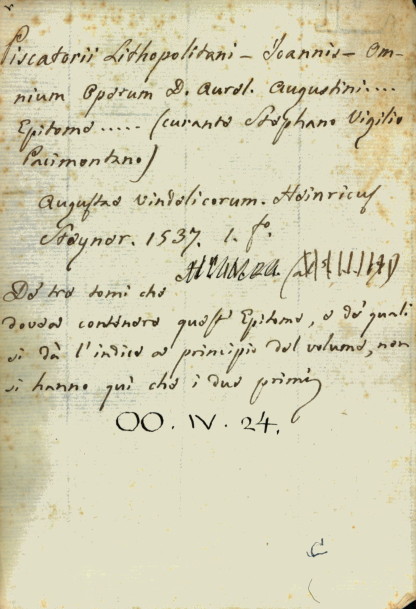 Piscatorii Lithopolitani - Joannis - Om-
nium Operum D. Aurel. Augustini....
Epitome ..... (curante Stephano Vigilio
Pacimontano)
Augustae Vindelicorum. Heinricus
Steyner. 1537. 1. fo.
De' tre tomi che
dovea contenere quest' Epitome, e de' quali
si dà l'indice a principio del volume, non
si hanno qui che i due primi
OO. IV. 24.